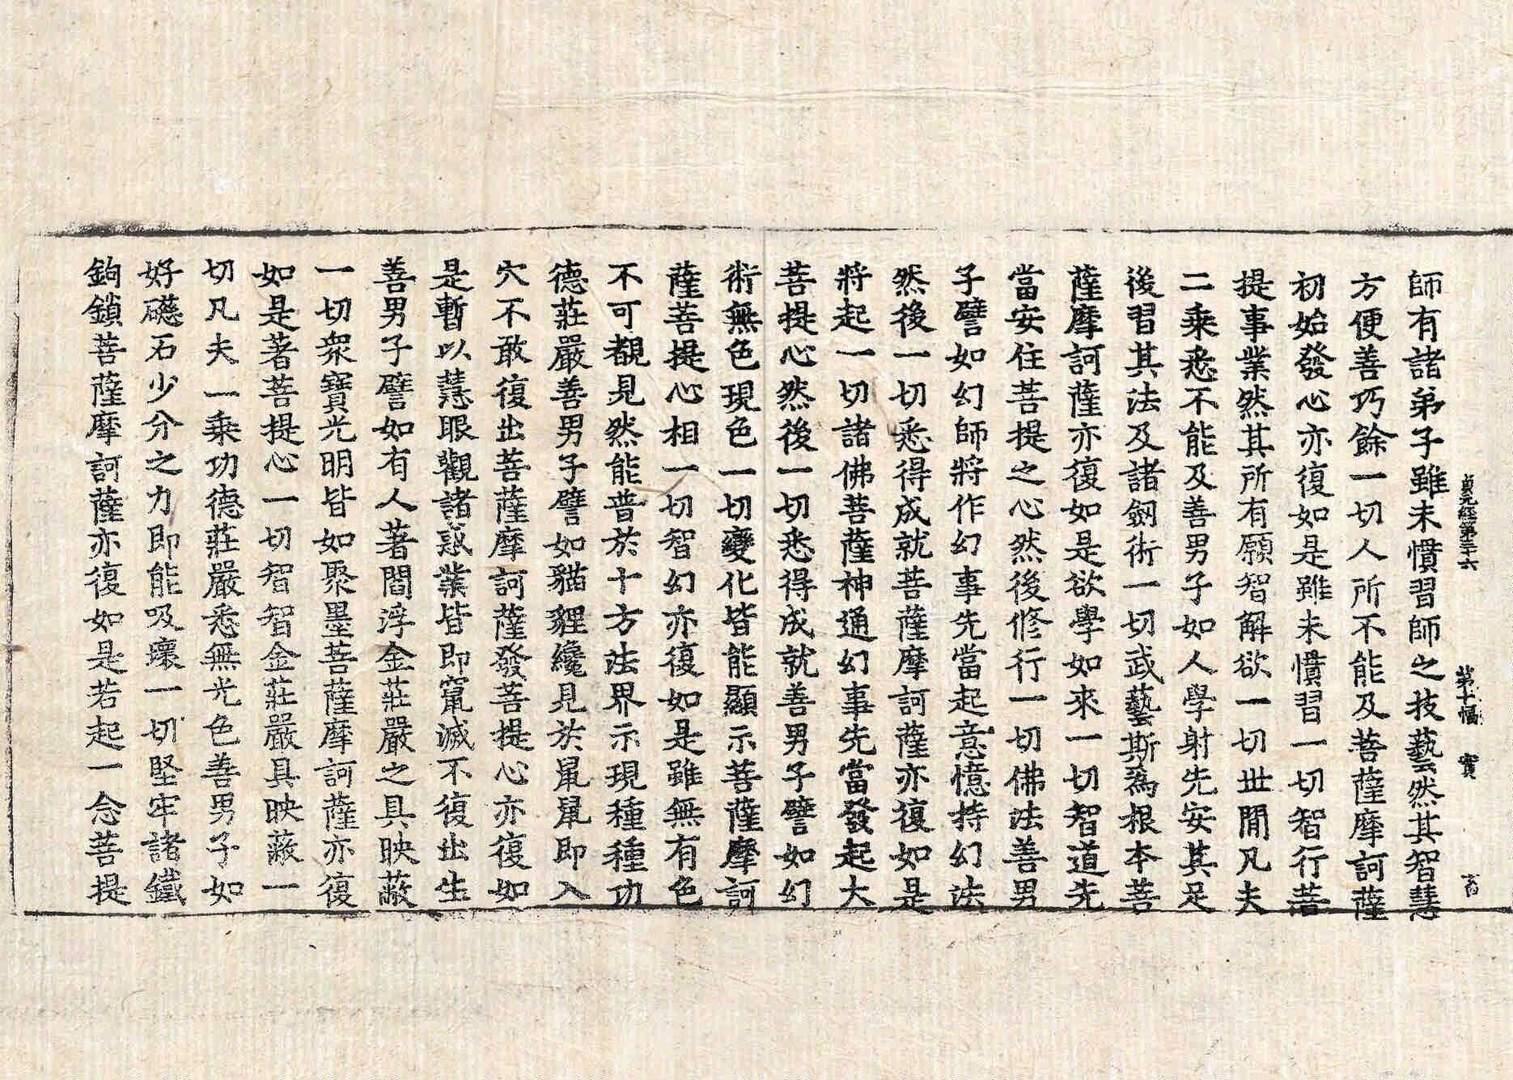 師有諸弟子雖未慣習師之技藝然其智慧
貞元經第三十六 第十幅 實
方便善巧餘一切人所不能及菩薩摩訶薩
初始發心亦復如是雖未慣習一切智行菩
提事業然其所有願智解欲一切世間凡夫
二乘悉不能及善男子如人學射先安其足
後習其法及諸劒術一切武藝斯為根本菩
薩摩訶薩亦復如是欲學如來一切智道先
當安住菩提之心然後修行一切佛法善男
子譬如幻師將作幻事先當起意憶持幻法
然後一切悉得成就菩薩摩訶薩亦復如是
將起一切諸佛菩薩神通幻事先當發起大
菩提心然後一切悉得成就善男子譬如幻
術無色現色一切變化皆能顯示菩薩摩訶
薩菩提心相一切智幻亦復如是雖無有色
不可覩見然能普於十方法界示現種種功
德莊嚴善男子譬如貓狸纔見於鼠鼠即入
穴不敢復出菩薩摩訶薩發菩提心亦復如
是暫以慧眼觀諸惑業皆即竄滅不復出生
善男子譬如有人著閻浮金莊嚴之具映蔽
一切眾寶光明皆如聚墨菩薩摩訶薩亦復
如是著菩提心一切智智金莊嚴具映蔽一
切凡夫一乘功德莊嚴悉無光色善男子如
好礠石少分之力即能吸壞一切堅牢諸鐵
鉤鎖菩薩摩訶薩亦復如是若起一念菩提